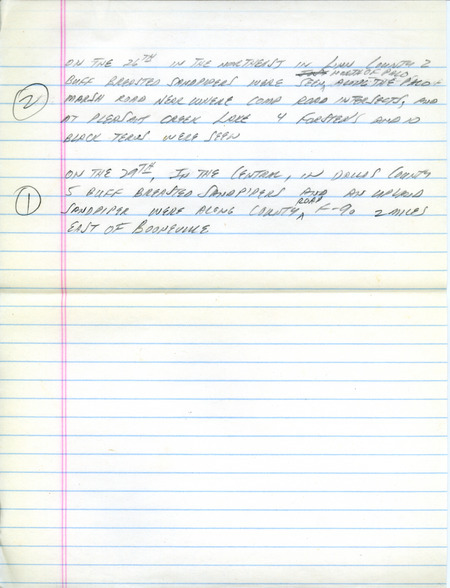 ON THE 26TH IN THE NORTHEAST IN LINN COUNTY 2
NORTH OF PALO,
BUFF BREASTED SANDPIPERS WERE SEEN, ALONG THE PALO
MARSH ROAD NEAR WHERE COMP ROAD INTERSECTS, AND
② AT PLEASANT CREEK LAKE 4 FORSTERS AND 10
BLACK TERNS WERE SEEN
ON THE 29TH, IN THE CENTRAL, IN DALLAS COUNTY
5 BUFF BREASTED SANDPIPERS AND AN UPLAND
① SANDPIPER WERE ALONG COUNTY ROAD F-90 2 MILES
EAST OF BOONEVILLE